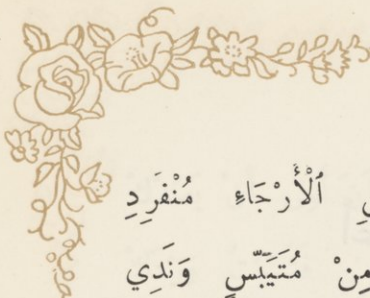 ٱلْأَرْجَاءِ مُنْفَرِدِ
مِنْ مُتَيَبِّسٍ وَنَدِي